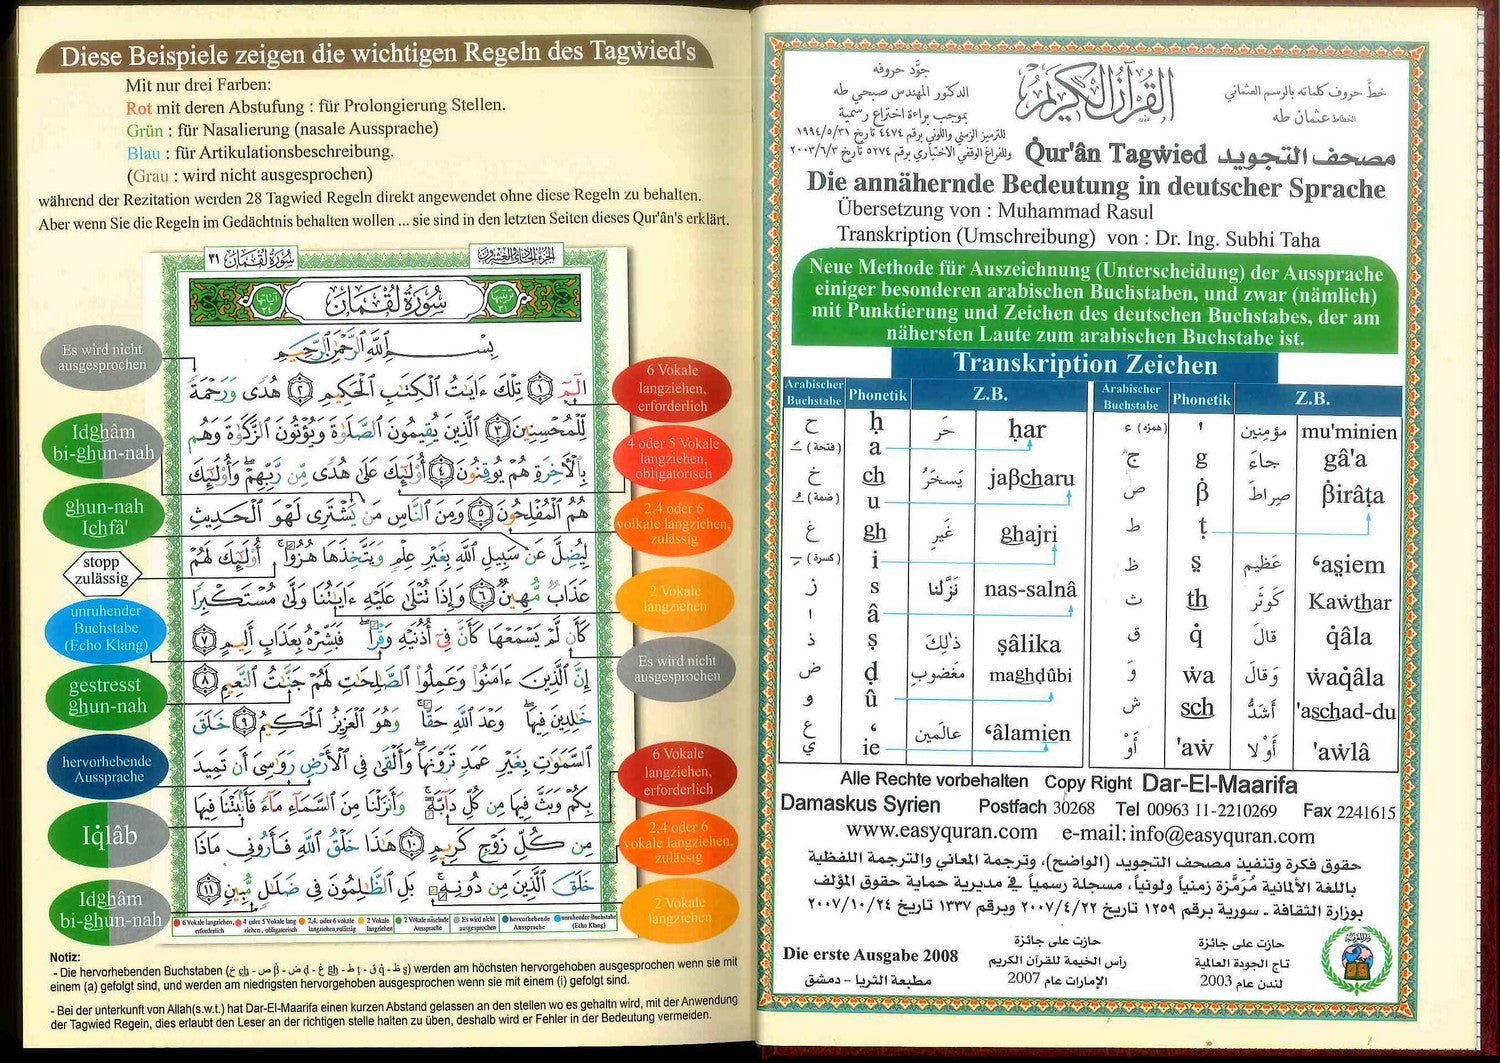 Diese Beispiele zeigen die wichtigen Regeln des Tagẇied's
Mit nur drei Farben:
Rot mit deren Abstufung : für Prolongierung Stellen.
Grün : für Nasalierung (nasale Aussprache)
Blau : für Artikulationsbeschreibung.
(Grau : wird nicht ausgesprochen)
während der Rezitation werden 28 Tagwied Regeln direkt angewendet ohne diese Regeln zu behalten.
Aber wenn Sie die Regeln im Gedächtnis behalten wollen ... sie sind in den letzten Seiten dieses Qur'ân's erklärt.
سورة لقمان ٣١
الجزء الحادي والعشرون
سُورَةُ لُقْمَان
بِسْمِ ٱللَّهِ ٱلرَّحْمَٰنِ ٱلرَّحِيمِ
الٓمٓ ١ تِلْكَ ءَايَٰتُ ٱلْكِتَٰبِ ٱلْحَكِيمِ ٢ هُدًى وَرَحْمَةً
لِّلْمُحْسِنِينَ ٣ ٱلَّذِينَ يُقِيمُونَ ٱلصَّلَوٰةَ وَيُؤْتُونَ ٱلزَّكَوٰةَ وَهُم
بِٱلْءَاخِرَةِ هُمْ يُوقِنُونَ ٤ أُوْلَٰٓئِكَ عَلَىٰ هُدًى مِّن رَّبِّهِمْ ۖ وَأُوْلَٰٓئِكَ
هُمُ ٱلْمُفْلِحُونَ ٥ وَمِنَ ٱلنَّاسِ مَن يَشْتَرِى لَهْوَ ٱلْحَدِيثِ
لِيُضِلَّ عَن سَبِيلِ ٱللَّهِ بِغَيْرِ عِلْمٍ وَيَتَّخِذَهَا هُزُوًا ۚ أُوْلَٰٓئِكَ لَهُمْ
عَذَابٌ مُّهِينٌ ٦ وَإِذَا تُتْلَىٰ عَلَيْهِ ءَايَٰتُنَا وَلَّىٰ مُسْتَكْبِرًا
كَأَن لَّمْ يَسْمَعْهَا كَأَنَّ فِىٓ أُذُنَيْهِ وَقْرًا ۖ فَبَشِّرْهُ بِعَذَابٍ أَلِيمٍ ٧
إِنَّ ٱلَّذِينَ ءَامَنُوا۟ وَعَمِلُوا۟ ٱلصَّٰلِحَٰتِ لَهُمْ جَنَّٰتُ ٱلنَّعِيمِ ٨
خَٰلِدِينَ فِيهَا ۖ وَعْدَ ٱللَّهِ حَقًّا ۚ وَهُوَ ٱلْعَزِيزُ ٱلْحَكِيمُ ٩ خَلَقَ
ٱلسَّمَٰوَٰتِ بِغَيْرِ عَمَدٍ تَرَوْنَهَا ۖ وَأَلْقَىٰ فِى ٱلْأَرْضِ رَوَٰسِىَ أَن تَمِيدَ
بِكُمْ وَبَثَّ فِيهَا مِن كُلِّ دَآبَّةٍ ۚ وَأَنزَلْنَا مِنَ ٱلسَّمَآءِ مَآءً فَأَنۢبَتْنَا فِيهَا
مِن كُلِّ زَوْجٍ كَرِيمٍ ١٠ هَٰذَا خَلْقُ ٱللَّهِ فَأَرُونِى مَاذَا
خَلَقَ ٱلَّذِينَ مِن دُونِهِۦ ۚ بَلِ ٱلظَّٰلِمُونَ فِى ضَلَٰلٍ مُّبِينٍ ١١
Es wird nicht
ausgesprochen
Idghâm
bi-ghun-nah
ghun-nah
Ichfâ'
stopp
zulässig
unruhender
Buchstabe
(Echo Klang)
gestresst
ghun-nah
hervorhebende
Aussprache
Iq̇lâb
Idghâm
bi-ghun-nah
6 Vokale
langziehen,
erforderlich
4 oder 5 Vokale
langziehen,
obligatorisch
2,4 oder 6
volkale langziehen,
zulässig
2 Vokale
langziehen
Es wird nicht
ausgesprochen
6 Vokale
langziehen,
erforderlich
2,4 oder 6
vokale langziehen,
zulässig
2 Vokale
langziehen
6 Vokale langziehen, erforderlich
4 oder 5 Vokale lang ziehen, obligatorisch
2,4, oder 6 vokale langziehen,zulässig
2 Vokale langziehen
2 Vokale näselnde Aussprache
Es wird nicht ausgesprochen
hervorhebende Aussprache
unruhender Buchstabe (Echo Klang)
Notiz:
- Die hervorhebenden Buchstaben (خ ch - ص β - ض ḍ - غ gh - ط ṭ - ق q̇ - ظ ṣ) werden am höchsten hervorgehoben ausgesprochen wenn sie mit
einem (a) gefolgt sind, und werden am niedrigsten hervorgehoben ausgesprochen wenn sie mit einem (i) gefolgt sind.
- Bei der unterkunft von Allah(s.w.t.) hat Dar-El-Maarifa einen kurzen Abstand gelassen an den stellen wo es gehaltn wird, mit der Anwendung
der Tagwied Regein, dies erlaubt den Leser an der richtigen stelle halten zu üben, deshalb wird er Fehler in der Bedeutung vermeiden.
القرآن الكريم
جوّد حروفه
الدكتور المهندس صبحي طه
بموجب براءة اختراع رسمية
للترميز الزمني واللوني برقم ٤٤٧٤ تاريخ ١٩٩٤/٥/٣١
وللفراغ الوقفي الاختياري برقم ٥٢٧٤ تاريخ ٢٠٠٣/٦/٣
خطّ حروف كلماته بالرسم العثماني
الخطاط عثمان طه
Q̇ur'ân Tagẇied مصحف التجويد
Die annähernde Bedeutung in deutscher Sprache
Übersetzung von : Muhammad Rasul
Transkription (Umschreibung) von : Dr. Ing. Subhi Taha
Neue Methode für Auszeichnung (Unterscheidung) der Aussprache
einiger besonderen arabischen Buchstaben, und zwar (nämlich)
mit Punktierung und Zeichen des deutschen Buchstabes, der am
nähersten Laute zum arabischen Buchstabe ist.
Transkription Zeichen
Arabischer Buchstabe Phonetik Z.B.
ح ḥ حَر ḥar
(فتحة) a
خ ch يَسخَرُ jaβcharu
(ضمة) u
غ gh غَيرِ ghajri
(كسرة) i
ز s نَزَّلنا nas-salnâ
ا â
ذ ṣ ذٰلِكَ ṣâlika
ض ḍ مَغضُوبِ maghḍûbi
و û
ع ‘ عالَمِين ‘âlamien
ي ie
Arabischer Buchstabe Phonetik Z.B.
(همزه) ء ' مؤمِنين mu'minien
ج g جاءَ gâ'a
ص β̇ صِراطَ β̇irâṭa
ط ṭ
ظ ṣ̤ عَظيم ‘aṣ̤iem
ث th كَوثَر Kaẇthar
ق q̇ قالَ q̇âla
وَ ẇa وَقالَ ẇaq̇âla
ش sch أَشَدُّ 'aschad-du
أَوْ 'aẇ أَوْلا 'aẇlâ
Alle Rechte vorbehalten Copy Right Dar-El-Maarifa
Damaskus Syrien Postfach 30268 Tel 00963 11-2210269 Fax 2241615
www.easyquran.com e-mail: info@easyquran.com
حقوق فكرة وتنفيذ مصحف التجويد (الواضح)، وترجمة المعاني والترجمة اللفظية
باللغة الألمانية مُرَمَّزة زمنياً ولونياً، مسجلة رسمياً في مديرية حماية حقوق المؤلف
بوزارة الثقافة ـ سورية برقم ١٢٥٩ تاريخ ٢٠٠٧/٤/٢٢ وبرقم ١٣٣٧ تاريخ ٢٠٠٧/١٠/٢٤
Die erste Ausgabe 2008
مطبعة الثريا - دمشق
حازت على جائزة
رأس الخيمة للقرآن الكريم
الإمارات عام 2007
حازت على جائزة
تاج الجودة العالمية
لندن عام 2003